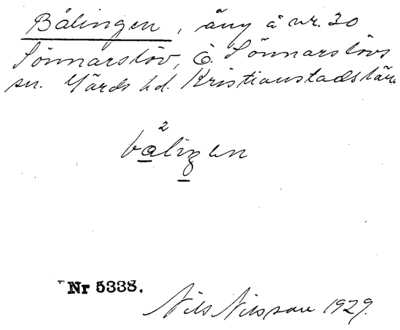 Bålingen, äng å nr. 30
Sönnarslöv, Ö. Sönnarslövs
sn. Gärds hd. Kristianstads län
2
balingen
Nr 5338.
Nils Nilsson 1929.